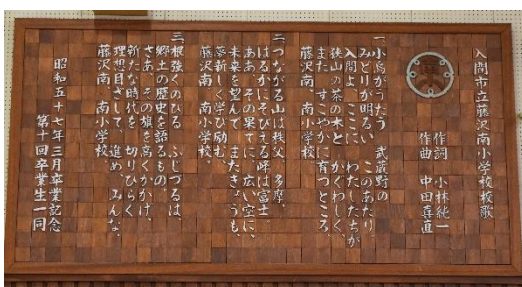 入間市立藤沢南小学校校歌
作詞 小林純一
作曲 中田喜直
一、小鳥がうたう 武蔵野の
みどりが明るい このあたり。
入間よ、ここに わたしたちが
狭山の茶の木と かぐわしく、
また、すこやかに 育つところ、
藤沢南、南小学校。
二、つながる山は 秩父、多摩、
はるかにそびえる峰は富士
ああ、その果てに、広い空に、
未来を望んで、またきょうも、
新しく学び励む、
藤沢南、南小学校。
三、根強くのびる ふじづるは、
郷土の歴史を語るもの。
さあ、その旗を高くかかげ、
新たな時代を 切りひらく
理想めざして、進め、みんな、
藤沢南、南小学校。
昭和五十七年三月卒業記念
第十回卒業生一同